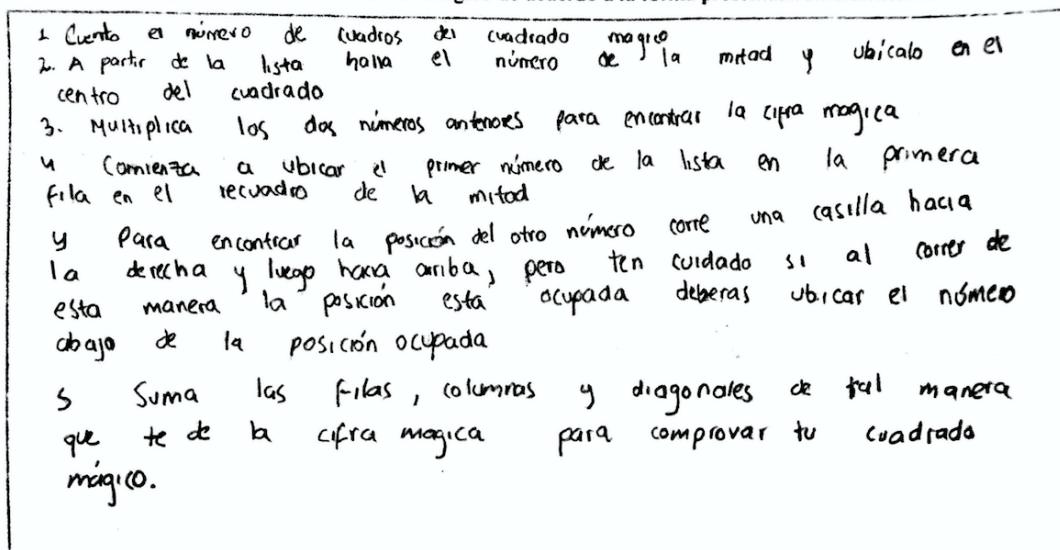 1 Cuento el número de cuadros del cuadrado magico
2. A partir de la lista halla el número de la mitad y ubícalo en el
centro del cuadrado
3. Multiplica los dos números anteriores para encontrar la cifra magica
4 Comienza a ubicar el primer número de la lista en la primera
fila en el recuadro de la mitad
y Para encontrar la posición del otro número corre una casilla hacia
la derecha y luego hacia arriba, pero ten cuidado si al correr de
esta manera la posición esta ocupada deberas ubicar el número
abajo de la posición ocupada
5 Suma las filas, columnas y diagonales de tal manera
que te de la cifra magica para comprovar tu cuadrado
mágico.